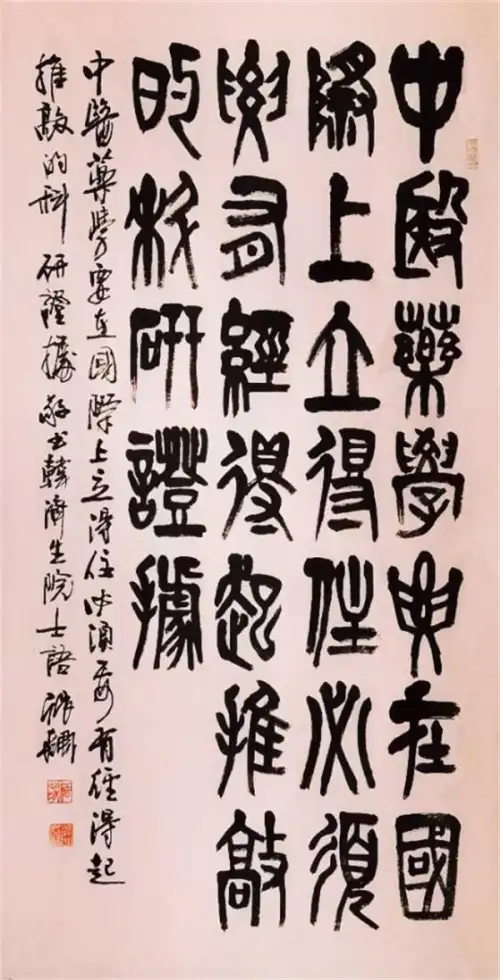 中醫藥學要在國
際上立得住必須
要有經得起推敲
的科研證據
中醫藥學要在國際上立得住必須要有經得起
推敲的科研證據敬書韓濟生院士語